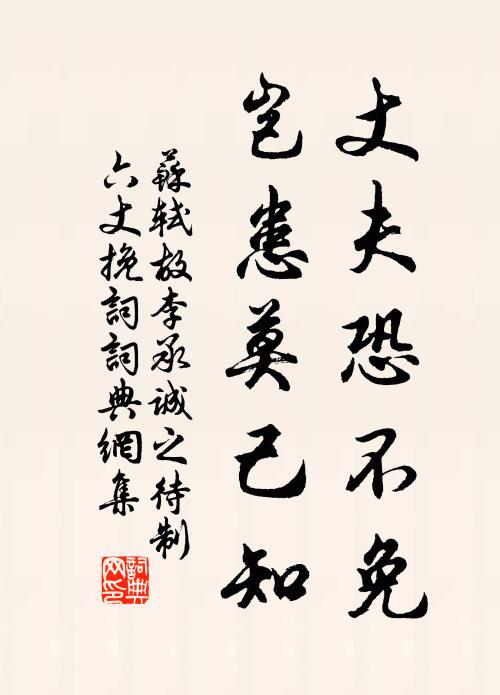 丈夫恐不免
豈患莫己知
蘇軾故李承誠之待制
六丈挽詞詞典網集
詞典
网印